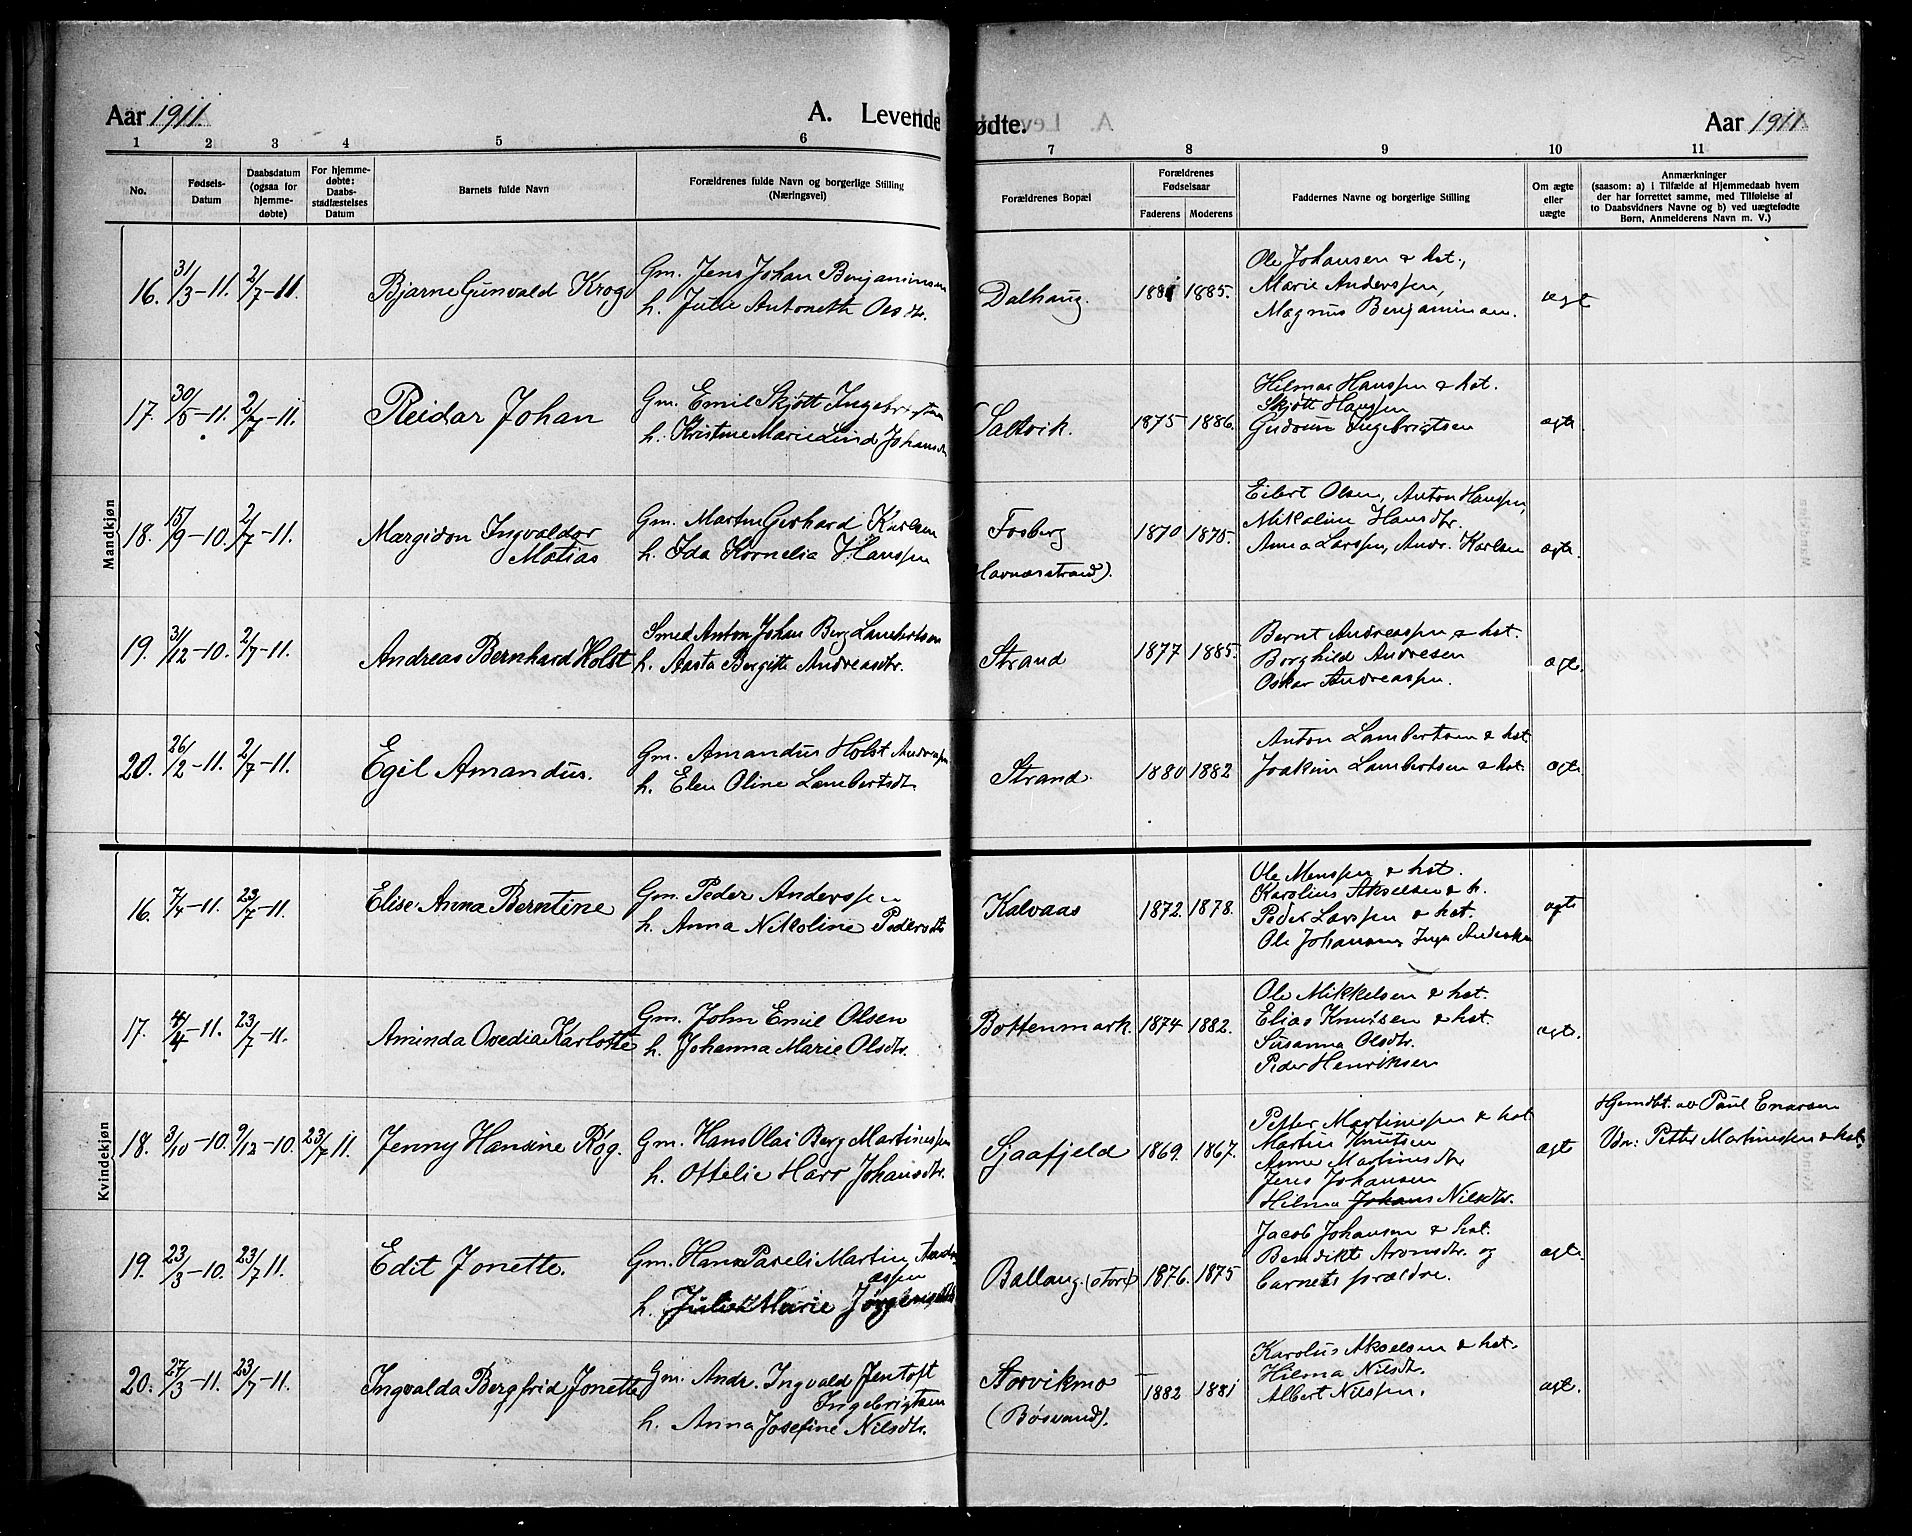 Aar 1911. A. Levende
1 2 3 4 5 6
No. Fødsels-Datum Daabsdatum (ogsaa for hjemme-døbte) For hjemme-døbte: Daabs-stadfæstelses Datum Barnets fulde Navn Forældrenes fulde Navn og borgerlige Stilling (Næringsvei)
Mandkjøn
16. 31/3-11. 2/7-11. Bjarne Gunvald Krogh Gm. Jens Johan Benjaminsen
h. Julie Antonette Olsdtr.
17. 30/5-11. 2/7-11. Reidar Johan Gm. Emil Skjøtt Ingebrigtsen
h. Kristine Marie Lind Johansdtr
18. 15/9-10. 2/7-11. Margidon Ingvaldor Gm. Martin Gerhard Karlsen
Matias h. Ida Kornelia Hanssen
19. 31/12-10. 2/7-11. Andreas Bernhard Holst Smed Anton Johan Berg Lambertsen
h. Aasta Bergitte Andreasdtr.
20. 26/2-11. 2/7-11. Egil Amandus. Gm. Amandus Holst Andreassen
h. Elen Oline Lambertsdtr.
Kvindekjøn
16. 7/4-11. 23/7-11. Elise Anna Berntine Gm. Peder Anderssen
h. Anna Nikoline Pedersdtr
17. 4/4-11. 23/7-11. Aminda Ovedia Karlotte Gm. John Emil Olsen
h. Johanna Marie Olsdtr.
18. 3/10-10. 9/12-10. 23/7 11. Jenny Hansine Røg. Gm. Hans Olai Berg Martinussen
h. Ottelie Harr Johansdtr.
19. 23/3-10. 23/7 11. Edit Jonette. Gm. Hans Pareli Martin Andre-
assen
h. Juliet Marie Jørgensdtr
20. 27/3-11. 23/7-11. Ingvalda Bergfrid Jonette Gm. Andr. Ingvald Jentoft
Ingebrigtsen
h. Anna Josefine Nilsdtr.
ødte. Aar 1911
7 8 9 10 11
Forældrenes Bopæl Forældrenes Fødselsaar Faderens Moderens Faddernes Navne og borgerlige Stilling Om ægte eller uægte Anmærkninger
(saasom: a) i Tilfælde af Hjemmedaab hvem
der har forrettet samme, med Tilføielse af
to Daabsvidners Navne og b) ved uægtefødte
Børn, Anmelderens Navn m. V.)
Dalhaug. 1881 1885. Ole Johansen & hst., ægt
Marie Anderssen,
Magnus Benjaminsen.
Saltvik. 1875 1886. Hilmar Hanssen & hst. ægte
Skjøtt Hanssen
Gudrun Ingebrigtsen
Fosberg 1870 1875. Eilert Olsen, Anton Hanssen, ægte
Mikaline Hansdtr.
Anna Larssen, Andr. Karlsen
(Havnarstrand).
Strand 1877 1885. Bernt Andreassen & hst. ægte
Borghild Andresen
Oskar Andreassen.
Strand 1880 1882 Anton Lambertsen & hst ægte
Joakim Lambertsen & hst.
Kalvaas 1872. 1878. Ole Monssen & hst. ægte
Karolius Akselsen & h.
Peder Larssen & hst.
Ole Johansen, Inga
Bottenmark. 1874 1882. Ole Mikkelsen & hst. ægte
Elias Knutsen & hst.
Susanna Olsdtr.
Peder Henriksen
Sjaafjeld 1869. 1867. Petter Martinussen & hst ægte Hjemdbt. av Paul Enarsen
Martin Knutsen Vdn: Petter Martinussen & hst.
Anne Martinusdtr
Jens Johansen
Hilma Johans Nilsdtr.
Ballang. (store) 1876. 1875 Jacob Johansen & hst. ægte
Bendikte Aronsdtr. og
barnets forældre.
Storvikmo 1882 1881 Karolus Akselsen & hst. ægte.
Hilma Nilsdtr.
Albert Nilssen.
(Bøsvand).